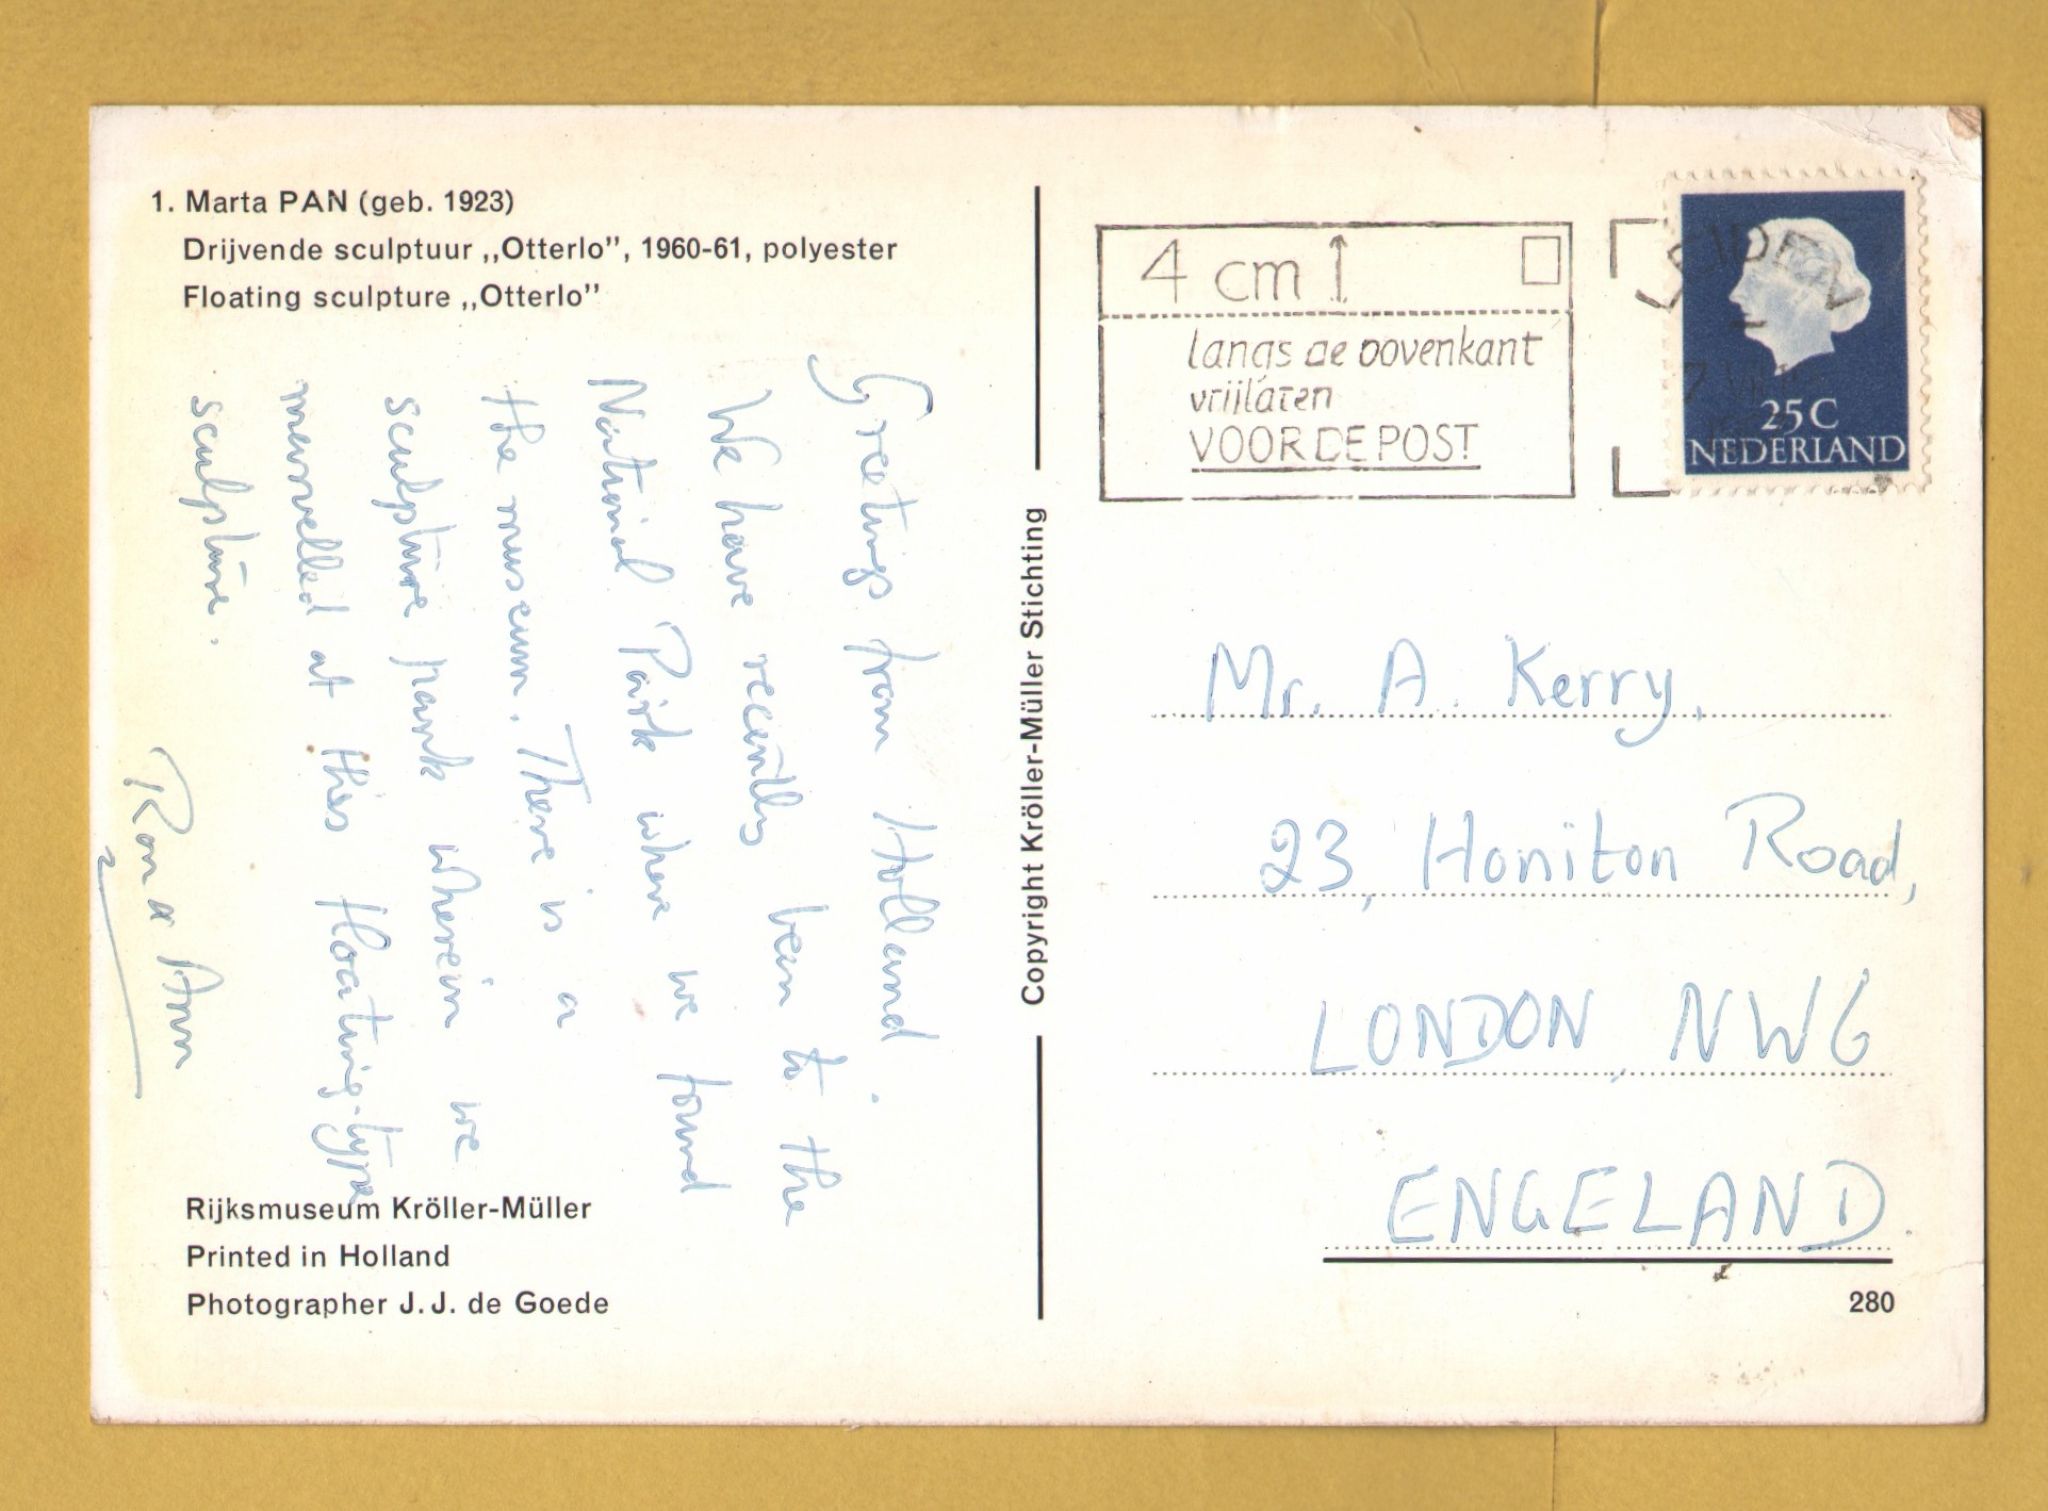 1. Marta PAN (geb. 1923)
Drijvende sculptuur ,,Otterlo", 1960-61, polyester
Floating sculpture ,,Otterlo"
Greetings from Holland.
We have recently been to the
National Park where we found
the museum. There is a
sculpture park wherein we
marvelled at this floating-type
sculpture.
Ron & Ann
Rijksmuseum Kröller-Müller
Printed in Holland
Photographer J. J. de Goede
Copyright Kröller-Müller Stichting
4 cm
langs de bovenkant
vrijlaten
VOOR DE POST
25C
NEDERLAND
Mr. A. Kerry,
23, Honiton Road,
LONDON, NW6
ENGELAND.
280